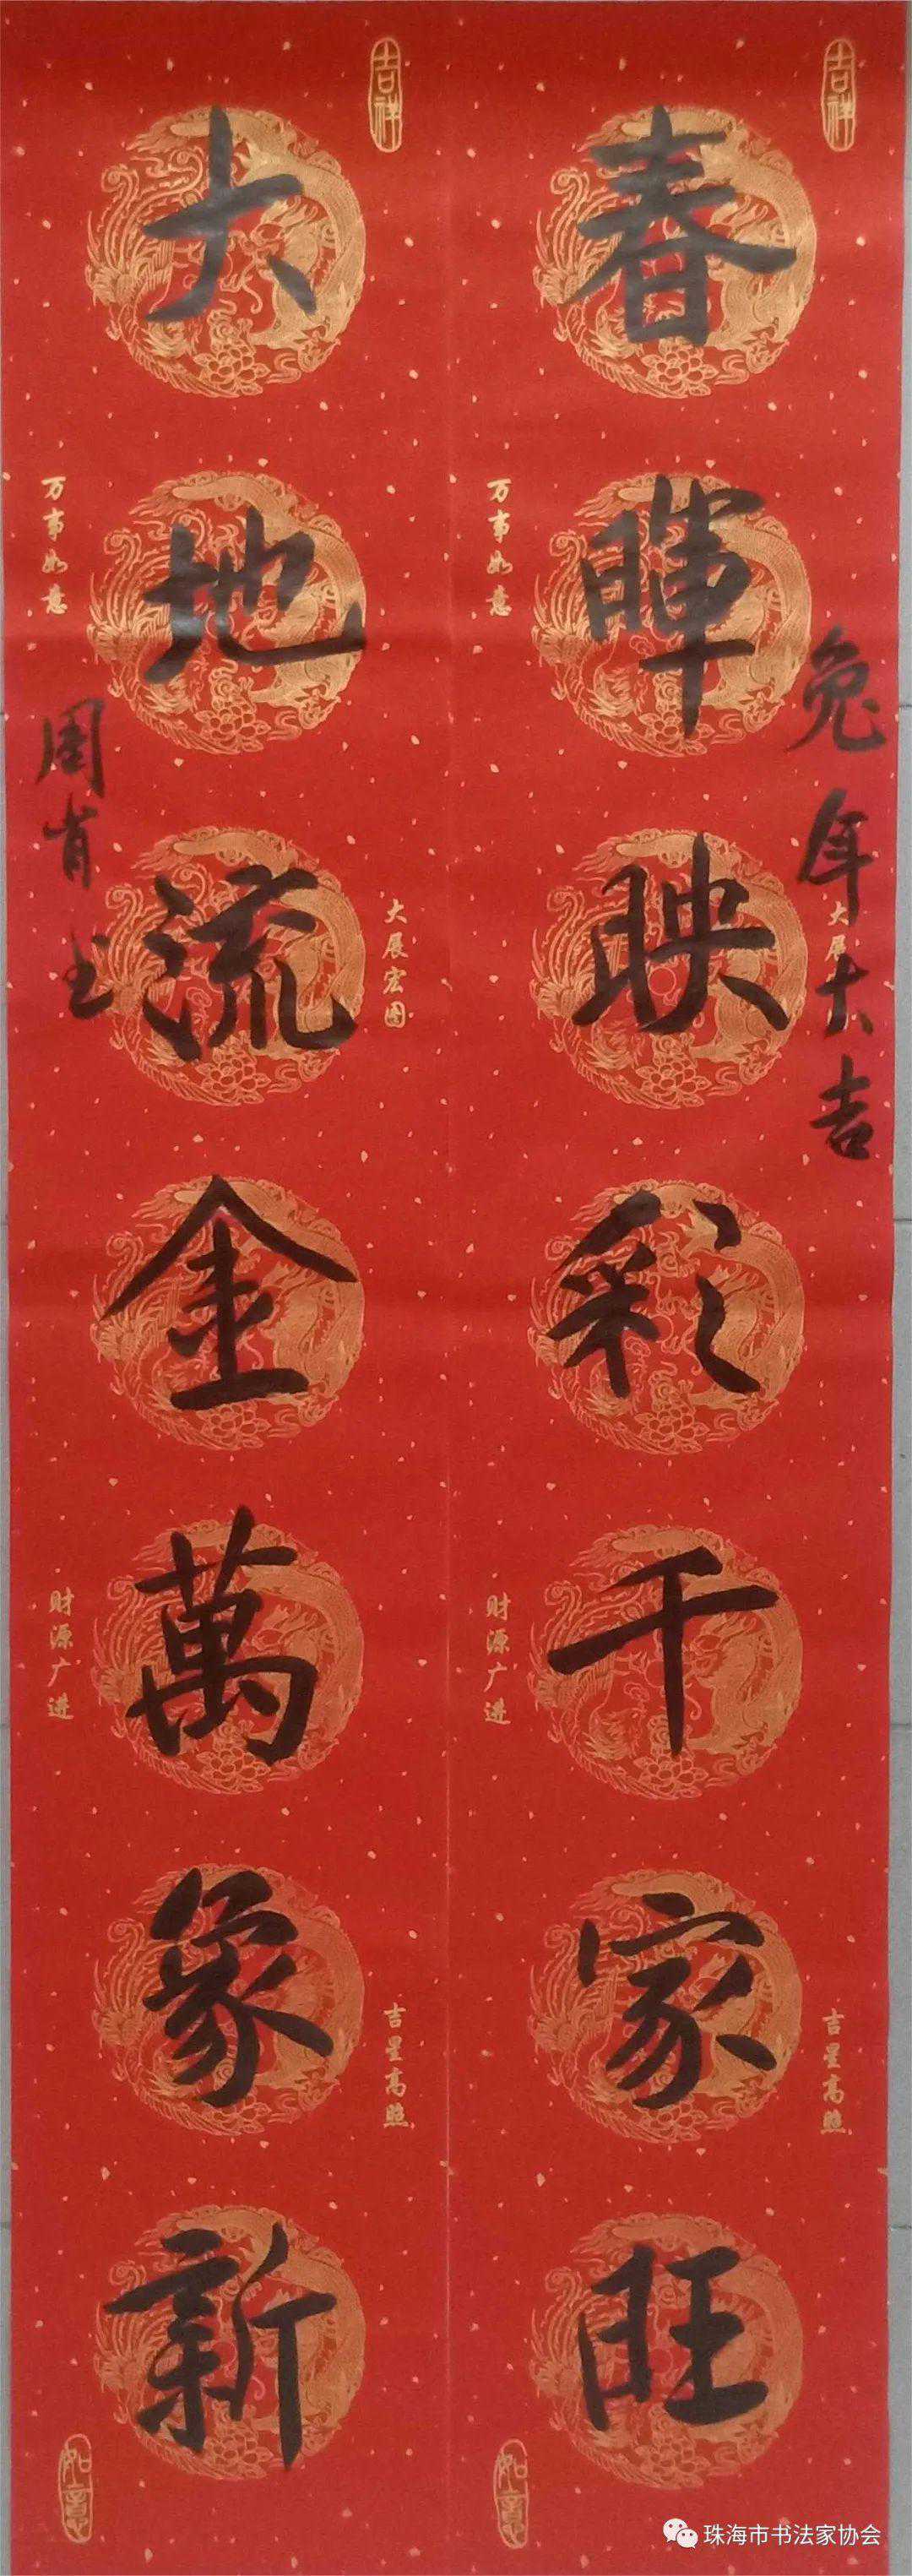 吉祥
兔年大吉
春暉映彩千家旺
万事如意
大展
财源广进
吉星高照
如意
吉祥
大地流金萬象新
万事如意
大展宏图
财源广进
吉星高照
如意
周肖书
珠海市书法家协会